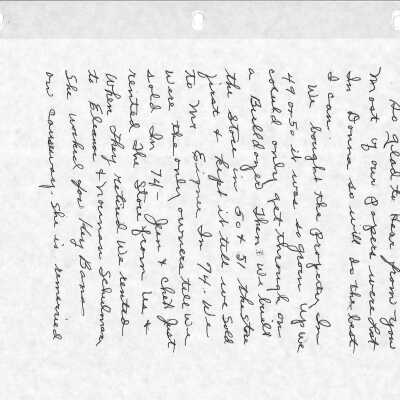 So glad to hear from you
Most of our papers were lost
In Donna so will do the best
I can.
We bought the Property In
49 or 50 it was so grown up we
could only get through on
a Bulldozer Then we built
the Store in 50 & 51 the store
first & kept it tell we sold
to Mr In 74. We
were the only owners tell we
sold In 74 - Jim & Chet Just
rented the Store from us &
When they retired we rented
to Eleanor & Norman Schulman
She worked for Key Bans
on causeway she is remarried